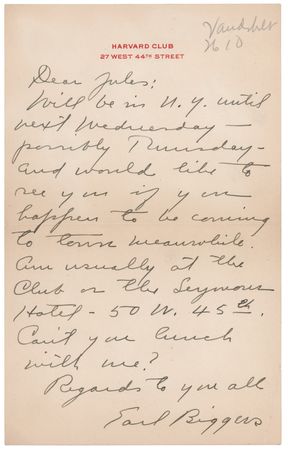 Vanderbilt
2610
HARVARD CLUB
27 WEST 44TH STREET
Dear Jules:
Will be in N.Y. until
next Wednesday -
possibly Thursday -
and would like to
see you if you
happen to be coming
to town meanwhile.
Am usually at the
Club or the Seymour
Hotel - 50 W. 45th.
Can't you lunch
with me?
Regards to you all
Earl Biggers